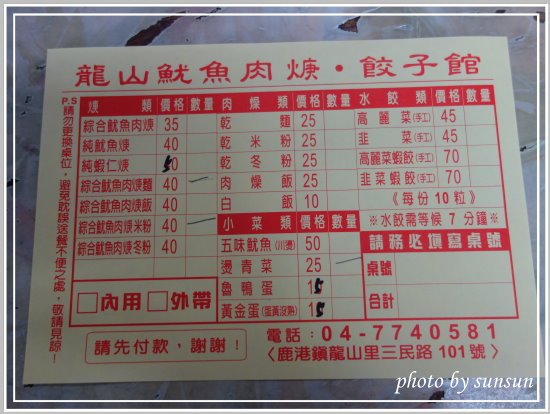 龍山魷魚肉焿・餃子館
焿類 價格 數量
綜合魷魚肉焿 35
純魷魚焿 40
純蝦仁焿 50
綜合魷魚肉焿麵 40
綜合魷魚肉焿飯 40
綜合魷魚肉焿米粉 40
綜合魷魚肉焿冬粉 40
□內用 □外帶
肉燥類 價格 數量
乾麵 25
乾米粉 25
乾冬粉 25
肉燥飯 25
白飯 10
小菜類 價格 數量
五味魷魚(川燙) 50
燙青菜 25
魯鴨蛋 15
黃金蛋(蛋黃沒熟) 15
水餃類 價格 數量
高麗菜(手工) 45
韭菜(手工) 45
高麗菜蝦餃(手工) 70
韭菜蝦餃(手工) 70
《每份10粒》
※水餃需等候7分鐘※
請務必填寫桌號
桌號
合計
P.S請勿更換桌位，避免耽誤送餐不便之處，敬請見諒！
請先付款，謝謝！
電話：04-7740581
〈鹿港鎮龍山里三民路101號〉
photo by sunsun